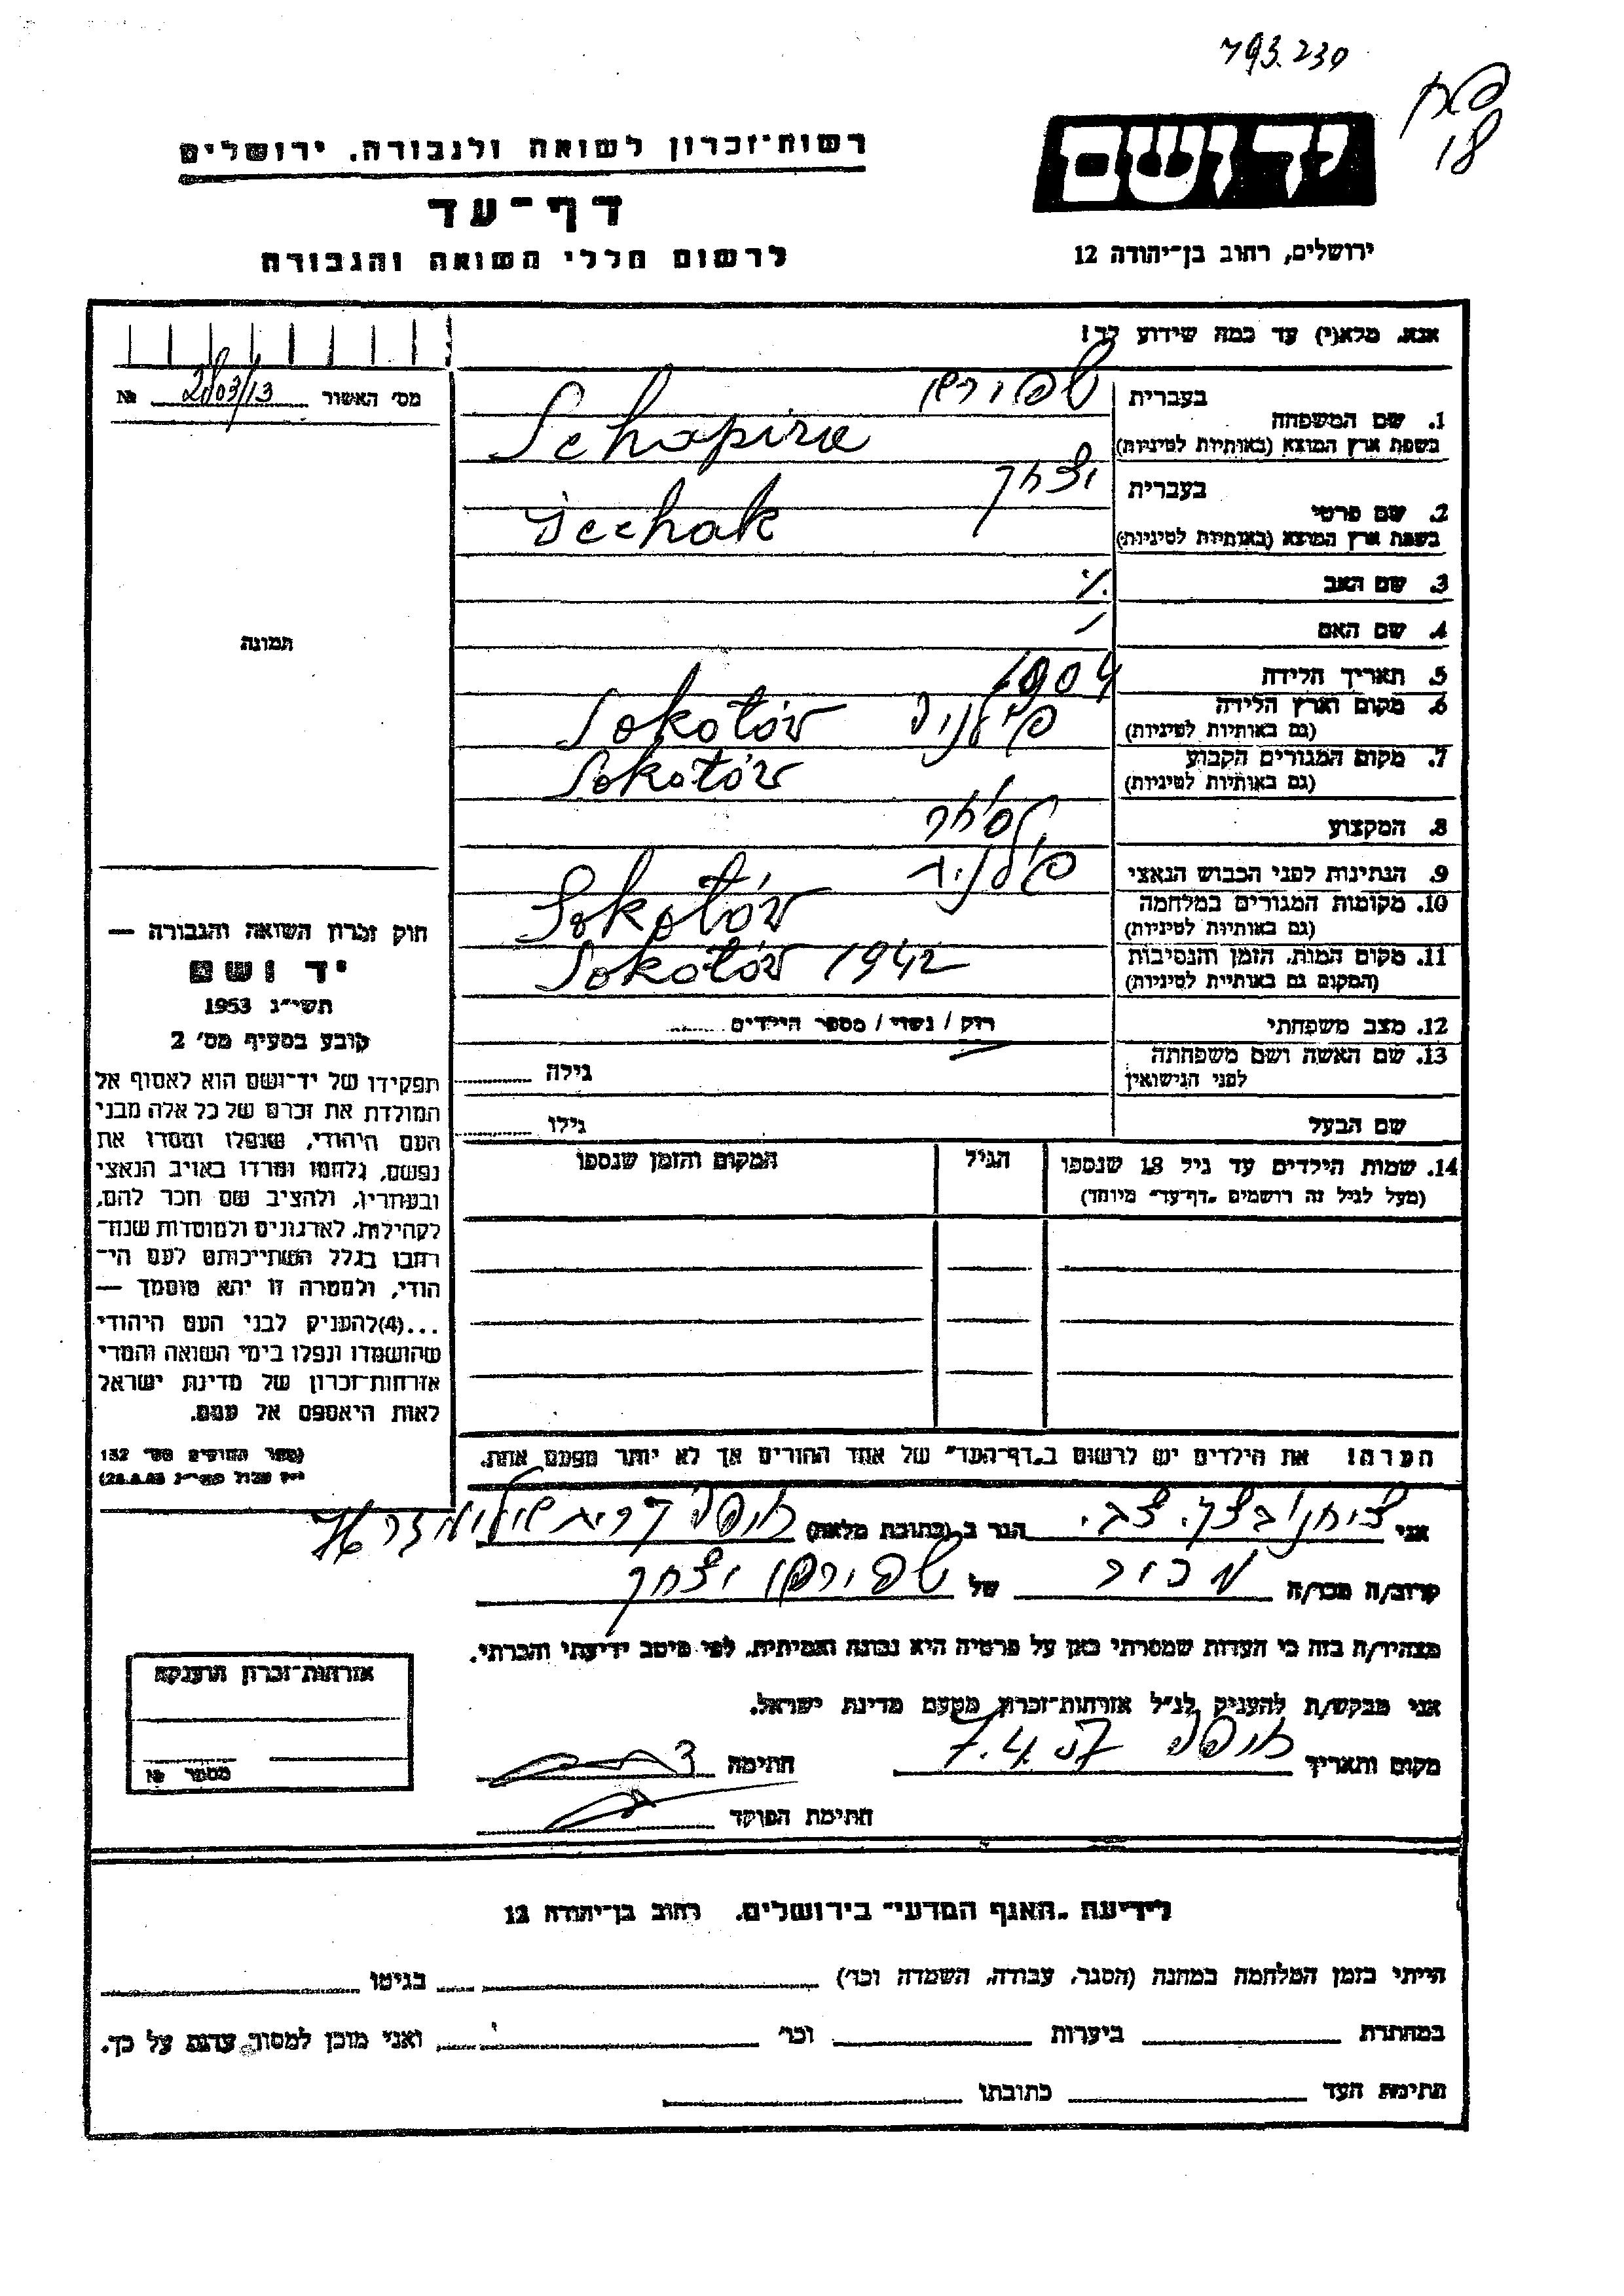 793.230
18
יד ושם
ירושלים, רחוב בן־יהודה 12
רשות־זכרון לשואה ולגבורה. ירושלים
דף־עד
לרשום חללי השואה והגבורה
אנא. מלא(י) עד כמה שידוע לך!
מס׳ האשור № 2803/13
תמונה
1. שם המשפחה
בעברית
בשפת ארץ המוצא (באותיות לטיניות)
Schapira
2. שם פרטי
בעברית יצחק
בשפת ארץ המוצא (באותיות לטיניות)
Icchak
3. שם האב
4. שם האם
5. תאריך הלידה 1904
6. מקום וארץ הלידה פולניה Sokołów
(גם באותיות לטיניות)
7. מקום המגורים הקבוע Sokołów
(גם באותיות לטיניות)
8. המקצוע סוחר
9. הנתינות לפני הכבוש הנאצי פולנית
10. מקומות המגורים במלחמה Sokołów
(גם באותיות לטיניות)
11. מקום המות, הזמן והנסיבות Sokołów 1942
(המקום גם באותיות לטיניות)
12. מצב משפחתי רוק / נשוי / מספר הילדים
13. שם האשה ושם משפחתה
לפני הנישואין גילה
שם הבעל גילו
14. שמות הילדים עד גיל 18 שנספו הגיל המקום והזמן שנספו
(מעל לגיל זה רושמים „דף־עד״ מיוחד)
חוק זכרון השואה והגבורה —
יד ושם
תשי״ג 1953
קובע בסעיף מס׳ 2
תפקידו של יד־ושם הוא לאסוף אל
המולדת את זכרם של כל אלה מבני
העם היהודי, שנפלו ומסרו את
נפשם, נלחמו ומרדו באויב הנאצי
ובעוזריו, ולהציב שם וזכר להם,
לקהילות, לארגונים ולמוסדות שנח־
רבו בגלל השתייכותם לעם הי־
הודי, ולמטרה זו יהא מוסמך —
...(4)להעניק לבני העם היהודי
שהושמדו ונפלו בימי השואה והמרי
אזרחות־זכרון של מדינת ישראל
לאות היאספם אל עמם.
(ספר החוקים מס׳ 132
הערה! את הילדים יש לרשום ב„דף־העד״ של אחד ההורים אך לא יותר מפעם אחת.
אני צבי הגר ב (כתובת מלאה) חיפה קרית
קרוב/ה מכר/ה מכיר של יצחק
מצהיר/ה בזה כי העדות שמסרתי כאן על פרטיה היא נכונה ואמיתית. לפי מיטב ידיעתי והכרתי.
אני מבקש/ת להעניק לנ״ל אזרחות־זכרון מטעם מדינת ישראל.
מקום ותאריך חיפה 7.4.57 חתימה
חתימת הפוקד
אזרחות־זכרון הוענקה
מספר №
לידיעת „האגף המדעי״ בירושלים. רחוב בן־יהודה 12
הייתי בזמן המלחמה במחנה (הסגר, עבודה, השמדה וכו׳) בגיטו
במחתרת ביערות וכו׳ ואני מוכן למסור עדות על כך.
חתימת העד כתובתו